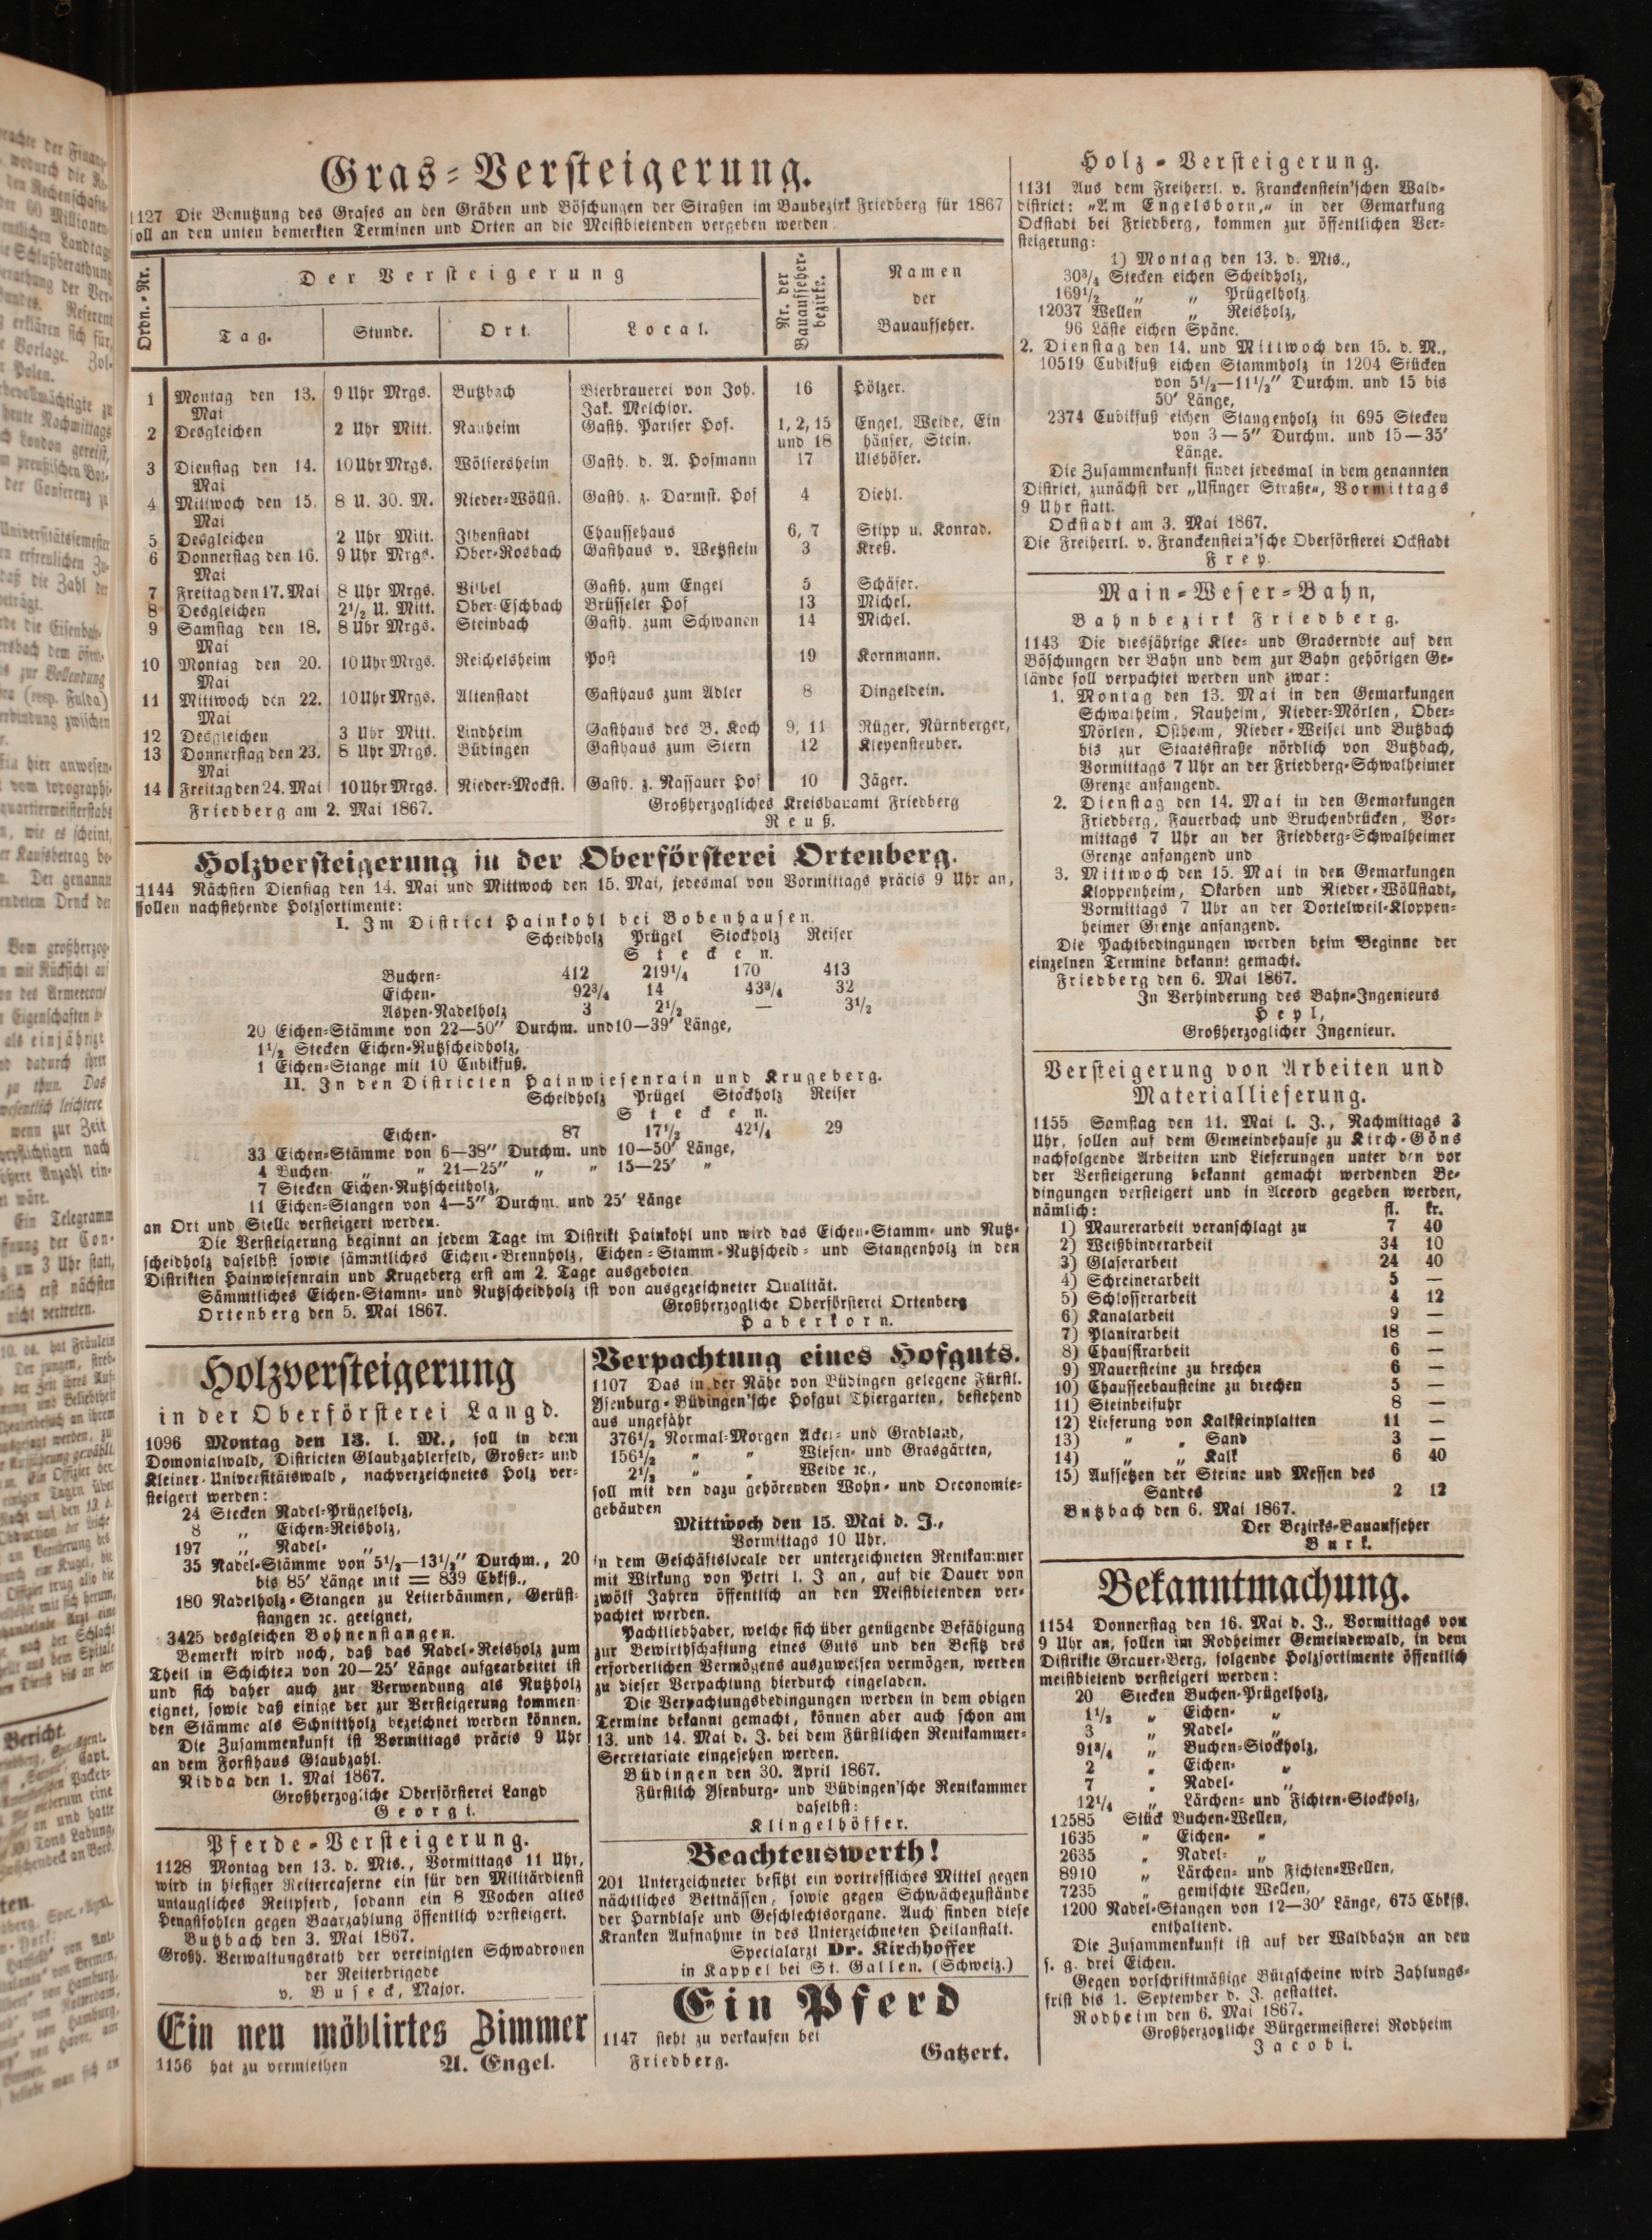 Gras-Versteigerung.
1127 Die Benutzung des Grases an den Gräben und Böschungen der Straßen im Baubezirk Friedberg für 1867
soll an den unten bemerkten Terminen und Orten an die Meistbietenden vergeben werden.
Ordn.-Nr. Der Versteigerung Nr. der Bauaufseher-bezirke. Namen der Bauaufseher.
Tag. Stunde. Ort. Local.
1 Montag den 13. Mai 9 Uhr Mrgs. Butzbach Bierbrauerei von Joh. Jak. Melchior. 16 Hölzer.
2 Desgleichen 2 Uhr Mitt. Nauheim Gasth. Pariser Hof. 1, 2, 15 und 18 Engel, Weide, Einhäuser, Stein.
3 Dienstag den 14. Mai 10 Uhr Mrgs. Wölfersheim Gasth. d. A. Hofmann 17 Ulshöfer.
4 Mittwoch den 15. Mai 8 U. 30. M. Nieder-Wöllst. Gasth. z. Darmst. Hof 4 Diehl.
5 Desgleichen 2 Uhr Mitt. Ilbenstadt Chaussehaus 6, 7 Stipp u. Konrad.
6 Donnerstag den 16. Mai 9 Uhr Mrgs. Ober-Rosbach Gasthaus v. Wetzstein 3 Kreß.
7 Freitag den 17. Mai 8 Uhr Mrgs. Vilbel Gasth. zum Engel 5 Schäfer.
8 Desgleichen 2½ U. Mitt. Ober-Eschbach Brüsseler Hof 13 Michel.
9 Samstag den 18. Mai 8 Uhr Mrgs. Steinbach Gasth. zum Schwanen 14 Michel.
10 Montag den 20. Mai 10 Uhr Mrgs. Reichelsheim Post 19 Kornmann.
11 Mittwoch den 22. Mai 10 Uhr Mrgs. Altenstadt Gasthaus zum Adler 8 Dingeldein.
12 Desgleichen 3 Uhr Mitt. Lindheim Gasthaus des B. Koch 9, 11 Rüger, Nürnberger,
13 Donnerstag den 23. Mai 8 Uhr Mrgs. Büdingen Gasthaus zum Stern 12 Kiepensteuber.
14 Freitag den 24. Mai 10 Uhr Mrgs. Nieder-Mockst. Gasth. z. Nassauer Hof 10 Jäger.
Friedberg am 2. Mai 1867. Großherzogliches Kreisbauamt Friedberg
Reuß.
Holzversteigerung in der Oberförsterei Ortenberg.
1144 Nächsten Dienstag den 14. Mai und Mittwoch den 15. Mai, jedesmal von Vormittags präcis 9 Uhr an,
sollen nachstehende Holzsortimente:
I. Im District Hainkohl bei Bobenhausen.
Scheidholz Prügel Stockholz Reiser
Stecken.
Buchen- 412 219¼ 170 413
Eichen- 92¾ 14 43¾ 32
Aspen-Nadelholz 3 2½ — 3½
20 Eichen-Stämme von 22—50″ Durchm. und 10—39′ Länge,
1½ Stecken Eichen-Nutzscheidholz,
1 Eichen-Stange mit 10 Cubikfuß.
II. In den Districten Hainwiesenrain und Krugeberg.
Scheidholz Prügel Stockholz Reiser
Stecken.
Eichen- 87 17½ 42¼ 29
33 Eichen-Stämme von 6—38″ Durchm. und 10—50′ Länge,
4 Buchen „ „ 21—25″ „ „ 15—25′ „
7 Stecken Eichen-Nutzscheitholz,
11 Eichen-Stangen von 4—5″ Durchm. und 25′ Länge
an Ort und Stelle versteigert werden.
Die Versteigerung beginnt an jedem Tage im Distrikt Hainkohl und wird das Eichen-Stamm- und Nutz-
scheidholz daselbst sowie sämmtliches Eichen-Brennholz, Eichen-Stamm-Nutzscheid- und Stangenholz in den
Distrikten Hainwiesenrain und Krugeberg erst am 2. Tage ausgeboten.
Sämmtliches Eichen-Stamm- und Nutzscheidholz ist von ausgezeichneter Qualität.
Ortenberg den 5. Mai 1867. Großherzogliche Oberförsterei Ortenberg
Haberkorn.
Holzversteigerung
in der Oberförsterei Langd.
1096 Montag den 13. l. M., soll in dem
Domonialwald, Districten Glaubzahlerfeld, Großer- und
Kleiner-Universitätswald, nachverzeichnetes Holz ver-
steigert werden:
24 Stecken Nadel-Prügelholz,
8 „ Eichen-Reisholz,
197 „ Nadel- „
35 Nadel-Stämme von 5½—13½″ Durchm., 20
bis 85′ Länge mit = 839 Cbkfß.,
180 Nadelholz-Stangen zu Leiterbäumen, Gerüst-
stangen ꝛc. geeignet,
3425 desgleichen Bohnenstangen.
Bemerkt wird noch, daß das Nadel-Reisholz zum
Theil in Schichten von 20—25′ Länge aufgearbeitet ist
und sich daher auch zur Verwendung als Nutzholz
eignet, sowie daß einige der zur Versteigerung kommen-
den Stämme als Schnittholz bezeichnet werden können.
Die Zusammenkunft ist Vormittags präcis 9 Uhr
an dem Forsthaus Glaubzahl.
Nidda den 1. Mai 1867.
Großherzogliche Oberförsterei Langd
Georgi.
Pferde-Versteigerung.
1128 Montag den 13. d. Mts., Vormittags 11 Uhr,
wird in hiesiger Reitercaserne ein für den Militärdienst
untaugliches Reitpferd, sodann ein 8 Wochen altes
Hengstfohlen gegen Baarzahlung öffentlich versteigert.
Butzbach den 3. Mai 1867.
Großh. Verwaltungsrath der vereinigten Schwadronen
der Reiterbrigade
v. Buseck, Major.
Ein neu möblirtes Zimmer
1156 hat zu vermiethen A. Engel.
Verpachtung eines Hofguts.
1107 Das in der Nähe von Büdingen gelegene Fürstl.
Ysenburg-Büdingen'sche Hofgut Thiergarten, bestehend
aus ungefähr
376½ Normal-Morgen Acker- und Grabland,
156½ „ „ Wiesen- und Grasgärten,
2½ „ „ Weide ꝛc.,
soll mit den dazu gehörenden Wohn- und Oeconomie-
gebäuden
Mittwoch den 15. Mai d. J.,
Vormittags 10 Uhr,
in dem Geschäftslocale der unterzeichneten Rentkammer
mit Wirkung von Petri l. J an, auf die Dauer von
zwölf Jahren öffentlich an den Meistbietenden ver-
pachtet werden.
Pachtliebhaber, welche sich über genügende Befähigung
zur Bewirthschaftung eines Guts und den Besitz des
erforderlichen Vermögens auszuweisen vermögen, werden
zu dieser Verpachtung hierdurch eingeladen.
Die Verpachtungsbedingungen werden in dem obigen
Termine bekannt gemacht, können aber auch schon am
13. und 14. Mai d. J. bei dem Fürstlichen Rentkammer-
Secretariate eingesehen werden.
Büdingen den 30. April 1867.
Fürstlich Ysenburg- und Büdingen'sche Rentkammer
daselbst:
Klingelhöffer.
Beachtenswerth!
201 Unterzeichneter besitzt ein vortreffliches Mittel gegen
nächtliches Bettnässen, sowie gegen Schwächezustände
der Harnblase und Geschlechtsorgane. Auch finden diese
Kranken Aufnahme in des Unterzeichneten Heilanstalt.
Specialarzt Dr. Kirchhoffer
in Kappel bei St. Gallen. (Schweiz.)
Ein Pferd
1147 steht zu verkaufen bei
Friedberg. Gatzert.
Holz-Versteigerung.
1131 Aus dem Freiherrl. v. Franckenstein'schen Wald-
district: „Am Engelsborn,“ in der Gemarkung
Ockstadt bei Friedberg, kommen zur öffentlichen Ver-
steigerung:
1) Montag den 13. d. Mts.,
30¾ Stecken eichen Scheidholz,
169½ „ „ Prügelholz,
12037 Wellen „ Reisholz,
96 Läste eichen Späne.
2. Dienstag den 14. und Mittwoch den 15. d. M.,
10519 Cubikfuß eichen Stammholz in 1204 Stücken
von 5½—11½″ Durchm. und 15 bis
50′ Länge,
2374 Cubikfuß eichen Stangenholz in 695 Stecken
von 3—5″ Durchm. und 15—35′
Länge.
Die Zusammenkunft findet jedesmal in dem genannten
District, zunächst der „Usinger Straße“, Vormittags
9 Uhr statt.
Ockstadt am 3. Mai 1867.
Die Freiherrl. v. Franckenstein'sche Oberförsterei Ockstadt
Frey.
Main-Weser-Bahn,
Bahnbezirk Friedberg.
1143 Die diesjährige Klee- und Graserndte auf den
Böschungen der Bahn und dem zur Bahn gehörigen Ge-
lände soll verpachtet werden und zwar:
1. Montag den 13. Mai in den Gemarkungen
Schwalheim, Nauheim, Nieder-Mörlen, Ober-
Mörlen, Ostheim, Nieder-Weisel und Butzbach
bis zur Staatsstraße nördlich von Butzbach,
Vormittags 7 Uhr an der Friedberg-Schwalheimer
Grenze anfangend.
2. Dienstag den 14. Mai in den Gemarkungen
Friedberg, Fauerbach und Bruchenbrücken, Vor-
mittags 7 Uhr an der Friedberg-Schwalheimer
Grenze anfangend und
3. Mittwoch den 15. Mai in den Gemarkungen
Kloppenheim, Okarben und Nieder-Wöllstadt,
Vormittags 7 Uhr an der Dortelweil-Kloppen-
heimer Grenze anfangend.
Die Pachtbedingungen werden beim Beginne der
einzelnen Termine bekannt gemacht.
Friedberg den 6. Mai 1867.
In Verhinderung des Bahn-Ingenieurs
Heyl,
Großherzoglicher Ingenieur.
Versteigerung von Arbeiten und
Materiallieferung.
1155 Samstag den 11. Mai l. J., Nachmittags 3
Uhr, sollen auf dem Gemeindehause zu Kirch-Göns
nachfolgende Arbeiten und Lieferungen unter den vor
der Versteigerung bekannt gemacht werdenden Be-
dingungen versteigert und in Accord gegeben werden,
nämlich: fl. kr.
1) Maurerarbeit veranschlagt zu 7 40
2) Weißbinderarbeit 34 10
3) Glaserarbeit 24 40
4) Schreinerarbeit 5 —
5) Schlosserarbeit 4 12
6) Kanalarbeit 9 —
7) Planirarbeit 18 —
8) Chaussirarbeit 6 —
9) Mauersteine zu brechen 6 —
10) Chausseebausteine zu brechen 5 —
11) Steinbeifuhr 8 —
12) Lieferung von Kalksteinplatten 11 —
13) „ „ Sand 3 —
14) „ „ Kalk 6 40
15) Aufsetzen der Steine und Messen des
Sandes 2 12
Butzbach den 6. Mai 1867.
Der Bezirks-Bauaufseher
Burk.
Bekanntmachung.
1154 Donnerstag den 16. Mai d. J., Vormittags von
9 Uhr an, sollen im Rodheimer Gemeindewald, in dem
Distrikte Grauer-Berg, folgende Holzsortimente öffentlich
meistbietend versteigert werden:
20 Stecken Buchen-Prügelholz,
1½ „ Eichen- „
3 „ Nadel- „
91¾ „ Buchen-Stockholz,
2 „ Eichen- „
7 „ Nadel- „
12¼ „ Lärchen- und Fichten-Stockholz,
12585 Stück Buchen-Wellen,
1635 „ Eichen- „
2635 „ Nadel- „
8910 „ Lärchen- und Fichten-Wellen,
7235 „ gemischte Wellen,
1200 Nadel-Stangen von 12—30′ Länge, 675 Cbkfß.
enthaltend.
Die Zusammenkunft ist auf der Waldbahn an den
s. g. drei Eichen.
Gegen vorschriftmäßige Bürgscheine wird Zahlungs-
frist bis 1. September d. J. gestattet.
Rodheim den 6. Mai 1867.
Großherzogliche Bürgermeisterei Rodheim
Jacobi.